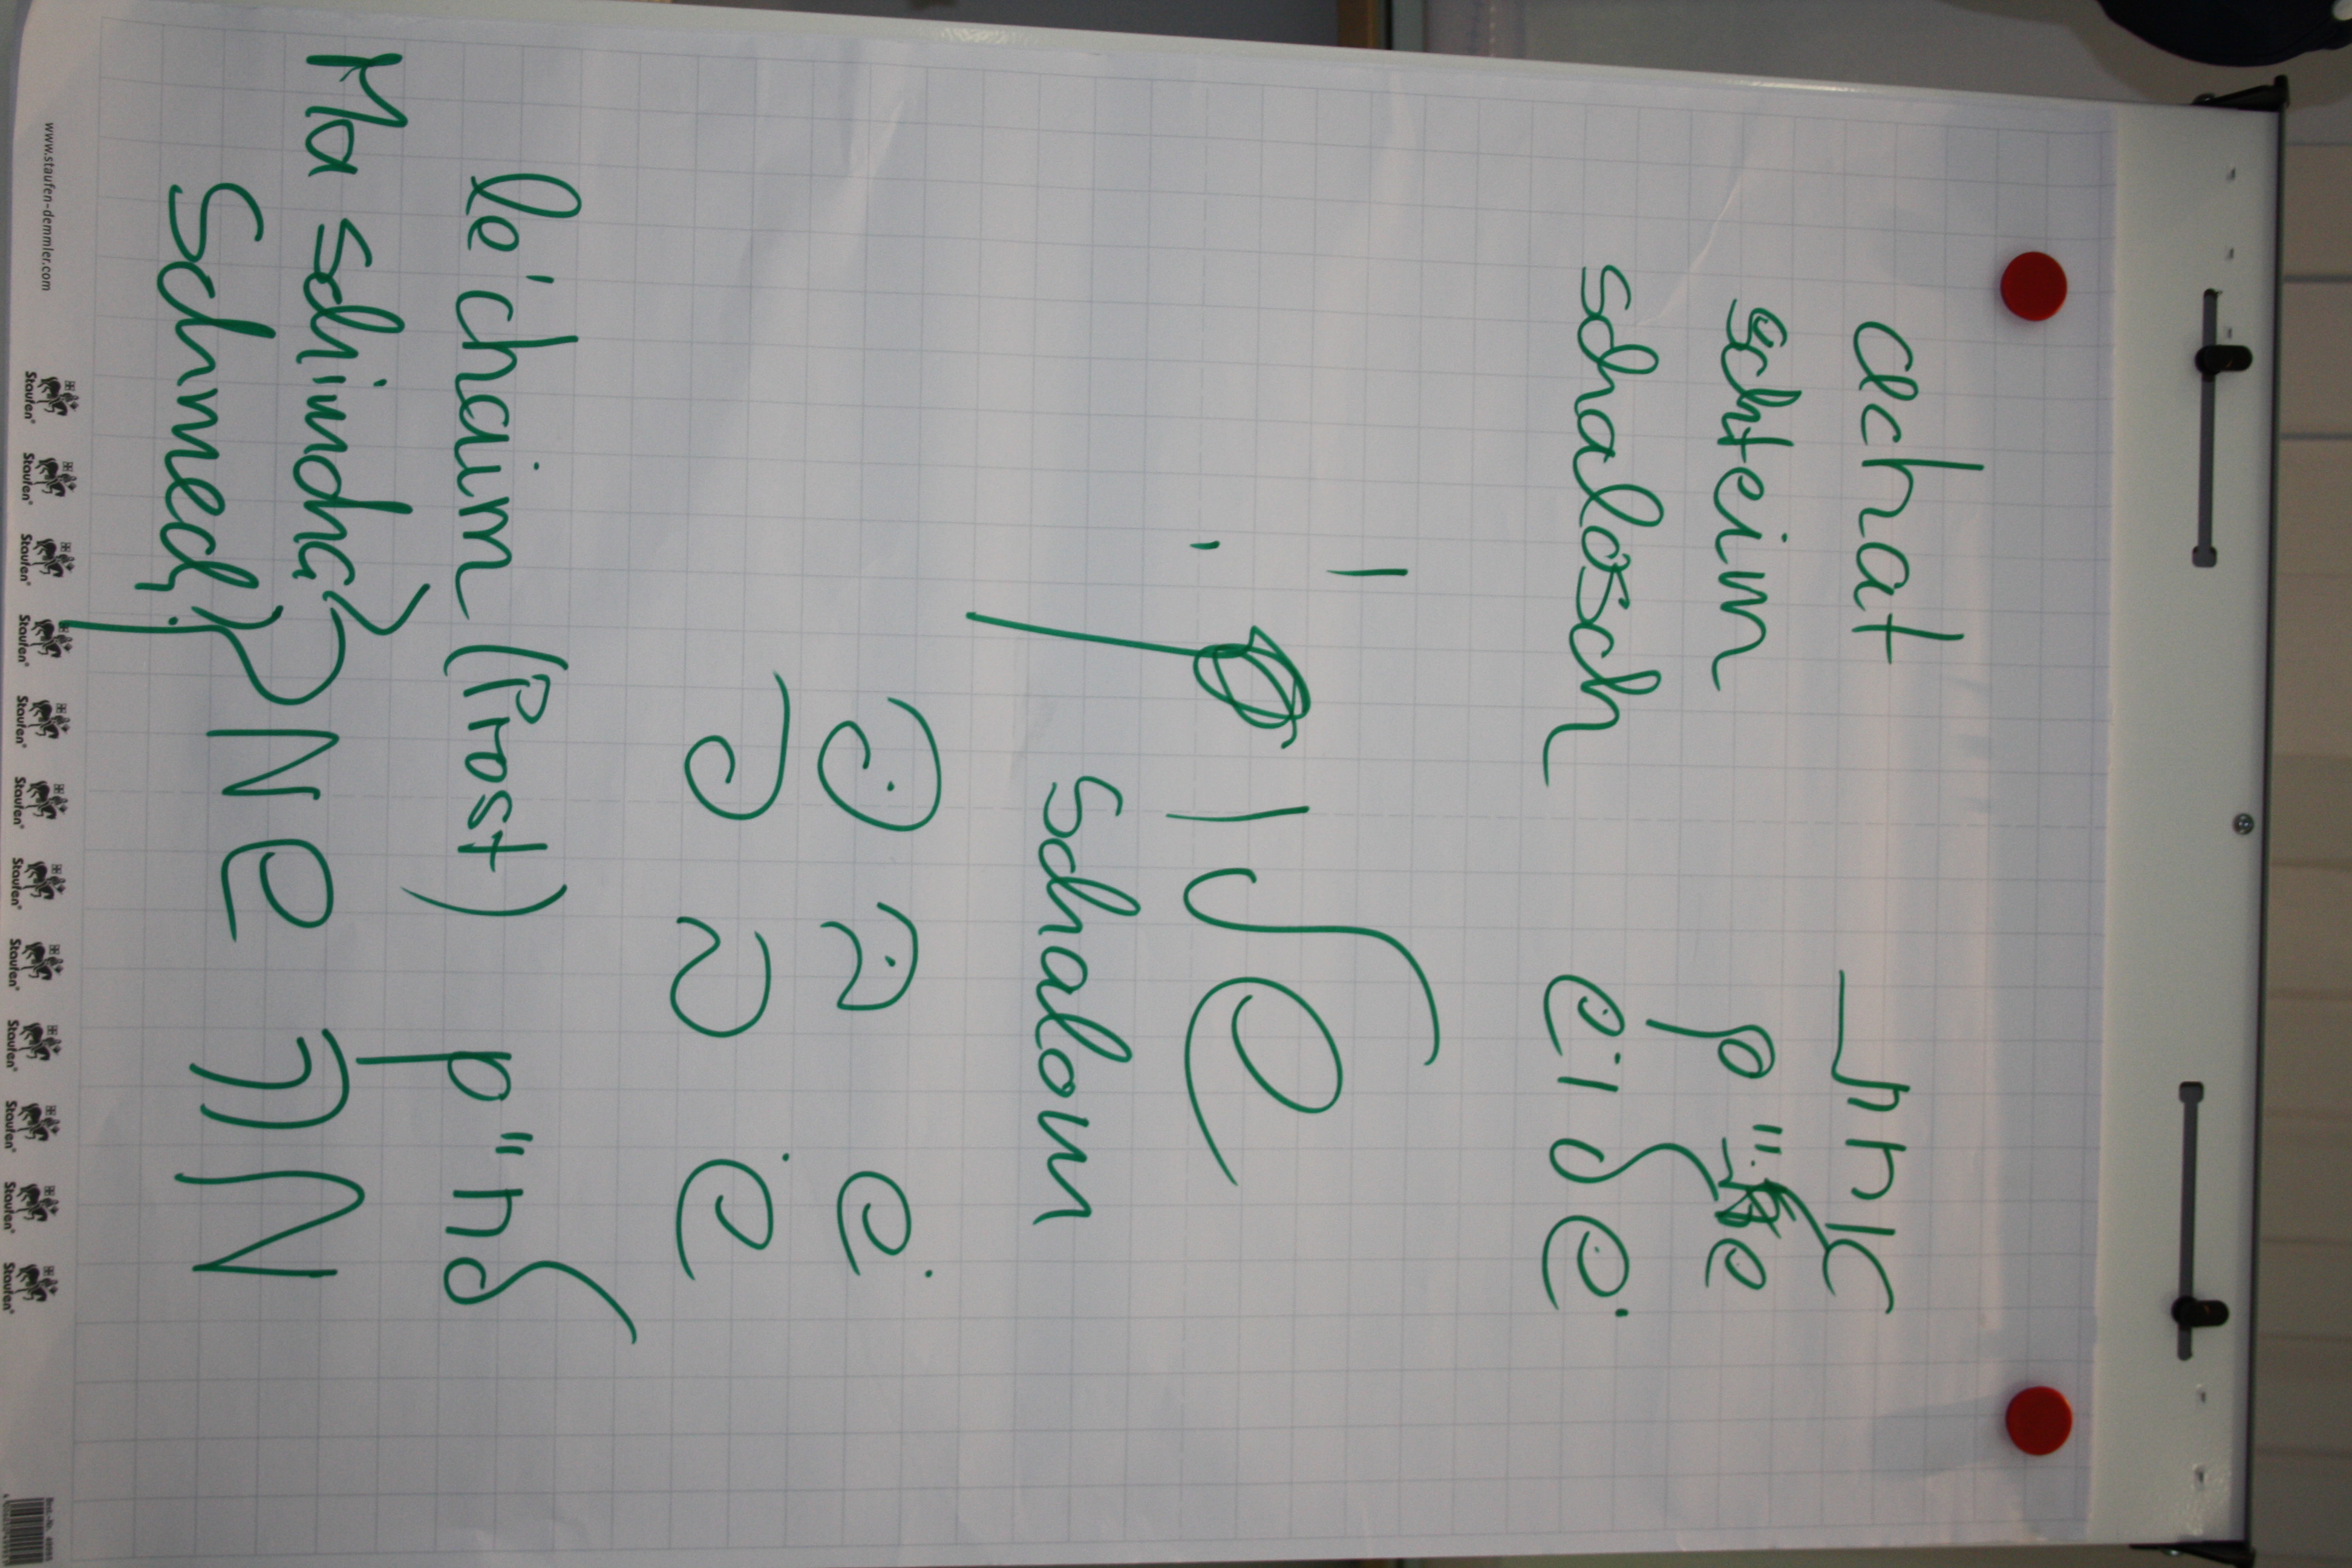 achat אחת
schteim שתיים
schalosch שׁלושׁ
שלום
schalom
שׁ בּ פּ
שׂ ב פ
le'chaim (Prost) לחיים
Ma schimcha?
Schmech? מה שמך
www.staufen-demmler.com Staufen Staufen Staufen Staufen Staufen Staufen Staufen Staufen Staufen Staufen Staufen Staufen